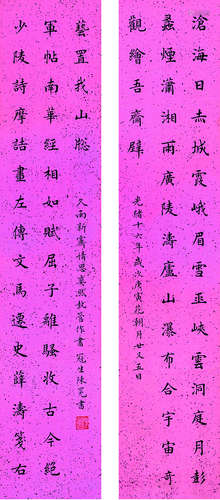 滄海日赤城霞峨眉雪巫峽雲洞庭月彭
蠡煙瀟湘雨廣陵濤廬山瀑布合宇宙奇
觀繪吾齋壁
光緒十六年歲次庚寅花朝月廿又五日
少陵詩摩詰畫左傳文馬遷史薛濤箋右
軍帖南華經相如賦屈子離騷收古今絕
藝置我山牎
久雨新霽情思管作書 冠生陳冕書